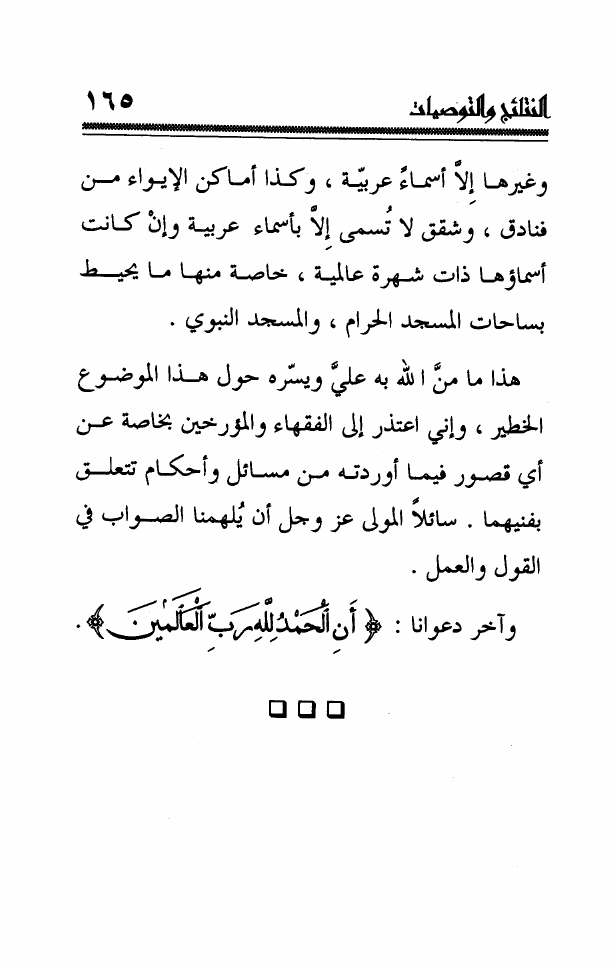 النتائج والتوصيات ١٦٥
وغيرها إلاَّ أسماءً عربيّة ، وكذا أماكن الإيواء من
فنادق ، وشقق لا تُسمى إلاَّ بأسماء عربية وإنْ كانت
أسماؤها ذات شهرة عالمية ، خاصة منها ما يحيط
بساحات المسجد الحرام ، والمسجد النبوي .
هذا ما منَّ الله به عليَّ ويسّره حول هذا الموضوع
الخطير ، وإني اعتذر إلى الفقهاء والمؤرخين بخاصة عن
أي قصور فيما أوردته من مسائل وأحكام تتعلق
بفنيهما . سائلاً المولى عز وجل أن يُلهمنا الصواب في
القول والعمل .
وآخر دعوانا : ﴿ أَنِ الْحَمْدُ لِلَّهِ رَبِّ الْعَالَمِينَ ﴾ .